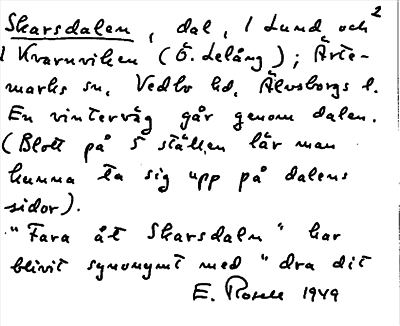 Skarsdalen, dal, 1 Lund och 2
1 Kvarnviken (Ö. Lelång); Ärte-
marks sn, Vedbo hd, Älvsborgs l.
En vinterväg går genom dalen.
(Blott på 5 ställen lär man
kunna ta sig upp på dalens
sidor).
"Fara åt Skarsdaln" har
blivit synonymt med "dra dit
E. Rosell 1949